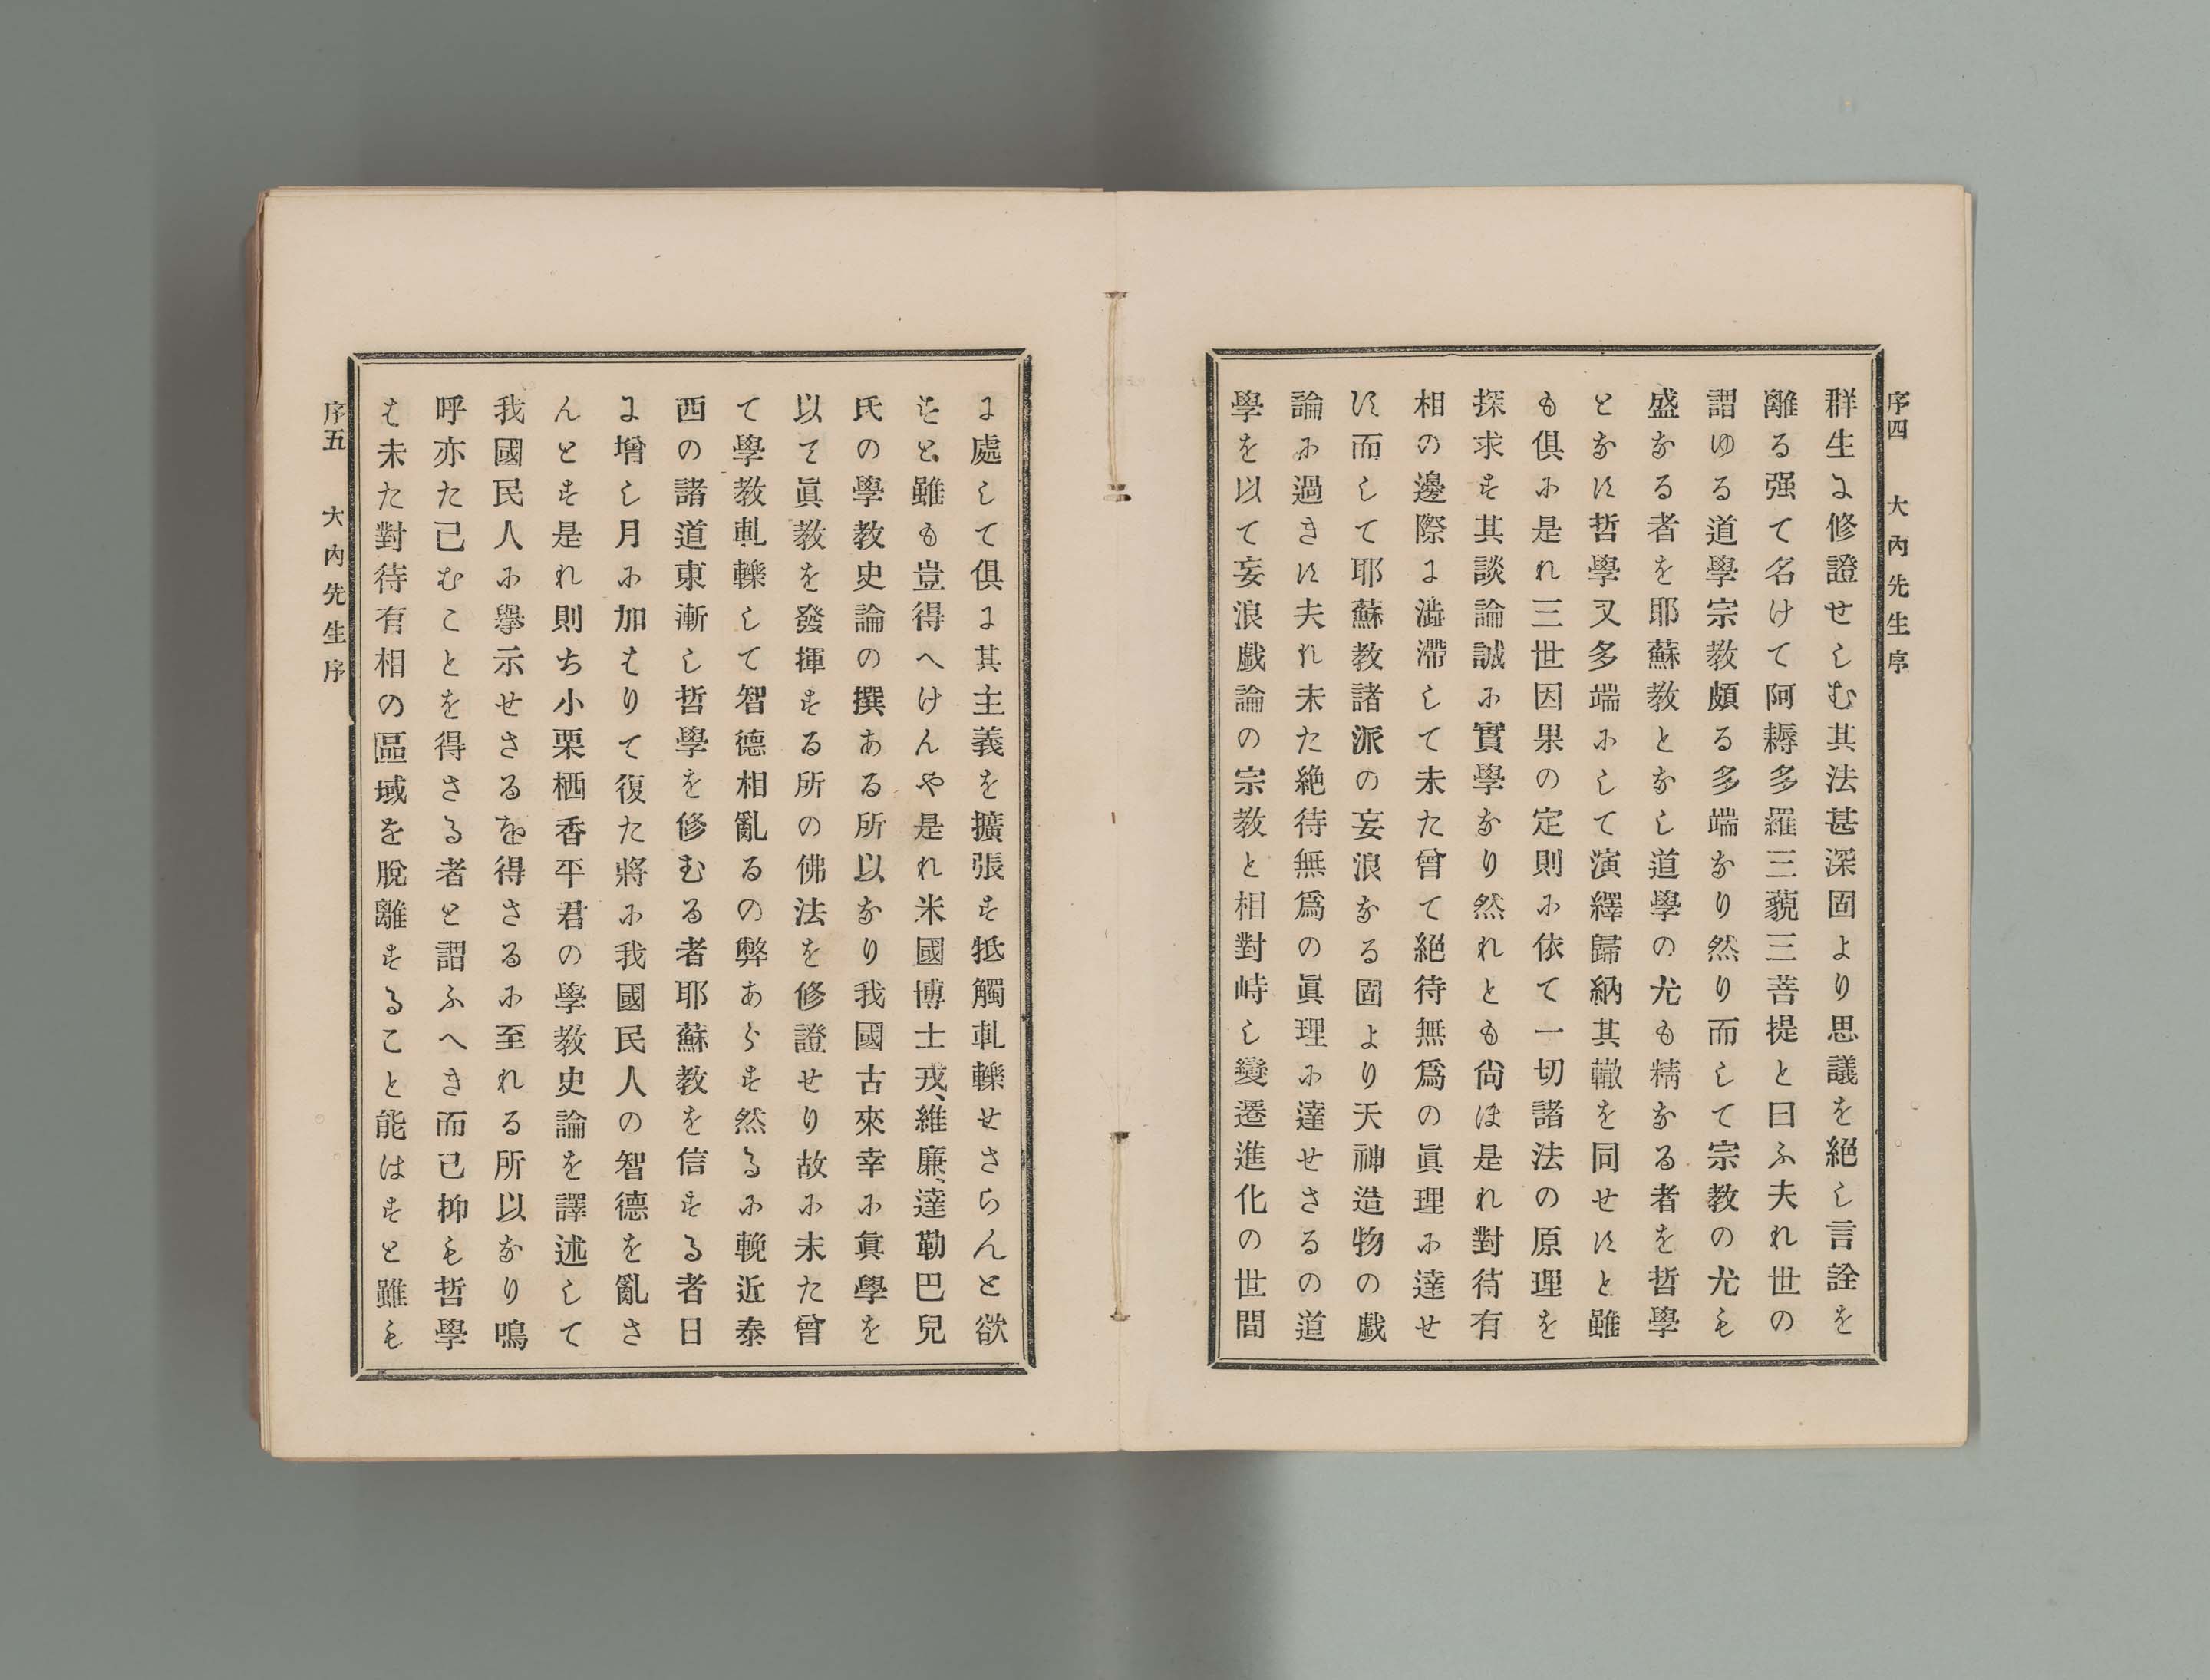 序四　大內先生序
群生に修證せしむ其法甚深固より思議を絶し言詮を
離る强て名けて阿耨多羅三藐三菩提と曰ふ夫れ世の
謂ゆる道學宗教頗る多端なり然り而して宗教の尤も
盛なる者を耶蘇教となし道學の尤も精なる者を哲學
となす哲學又多端にして演繹歸納其轍を同せすと雖
も俱に是れ三世因果の定則に依て一切諸法の原理を
探求す其談論誠に實學なり然れとも尙ほ是れ對待有
相の邊際に澁滯して未た曾て絶待無爲の眞理に達せ
す而して耶蘇教諸派の妄浪なる固より天神造物の戲
論に過きす夫れ未た絶待無爲の眞理に達せさるの道
學を以て妄浪戲論の宗教と相對峙し變遷進化の世間
に處して俱に其主義を擴張す牴觸軋轢せさらんと欲
すと雖も豈得へけんや是れ米國博士戎、維廉、達勒巴兒
氏の學教史論の撰ある所以なり我國古來幸に眞學を
以て眞教を發揮する所の佛法を修證せり故に未た曾
て學教軋轢して智德相亂るの弊あらす然るに輓近泰
西の諸道東漸し哲學を修むる者耶蘇教を信する者日
に增し月に加はりて復た將に我國民人の智德を亂さ
んとす是れ則ち小栗栖香平君の學教史論を譯述して
我國民人に擧示せさるを得さるに至れる所以なり嗚
呼亦た已むことを得さる者と謂ふへき而已抑も哲學
は未た對待有相の區域を脫離することと能はすと雖も
序五　大內先生序